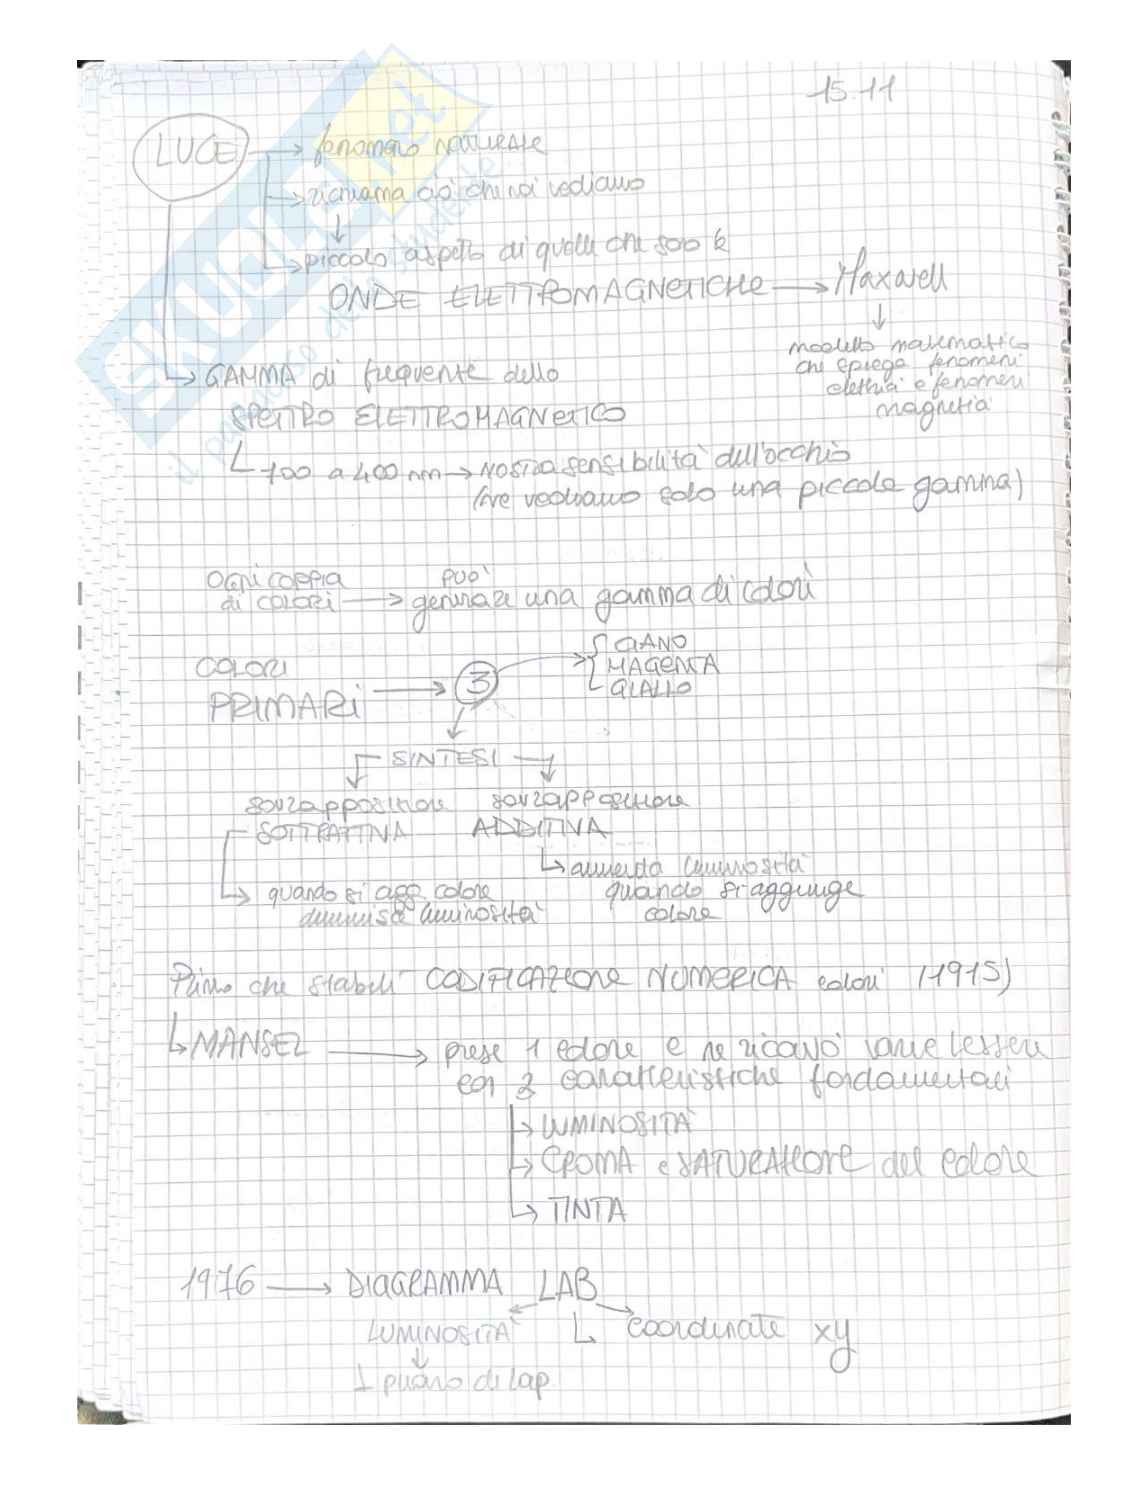 15.11
LUCE → fenomeno naturale
→ richiama ciò che noi vediamo
↓
→ piccolo aspetto di quelle che sono le
ONDE ELETTROMAGNETICHE → Maxwell
↓
modello matematico
che spiega fenomeni
elettrici e fenomeni
magnetici
→ GAMMA di frequenze dello
SPETTRO ELETTROMAGNETICO
700 a 400 nm → nostra sensibilità dell'occhio
(ne vediamo solo una piccola gamma)
ogni coppia può
di colori → generare una gamma di colori
CIANO
COLORI MAGENTA
PRIMARI → 3 → GIALLO
SINTESI
sovrapposizione sovrapposizione
SOTTRATTIVA ADDITIVA
→ aumenta luminosità
→ quando si agg. colore quando si aggiunge
diminuisce luminosità colore
Primo che stabilì CODIFICAZIONE NUMERICA colori (1915)
MANSEL → prese 1 colore e ne ricavò varie tessere
con 3 caratteristiche fondamentali
→ LUMINOSITÀ
→ CROMA e SATURAZIONE del colore
→ TINTA
1976 → DIAGRAMMA LAB
LUMINOSITÀ coordinate xy
↓
1 piano di
SKUOLA.net
il paradiso dello studente